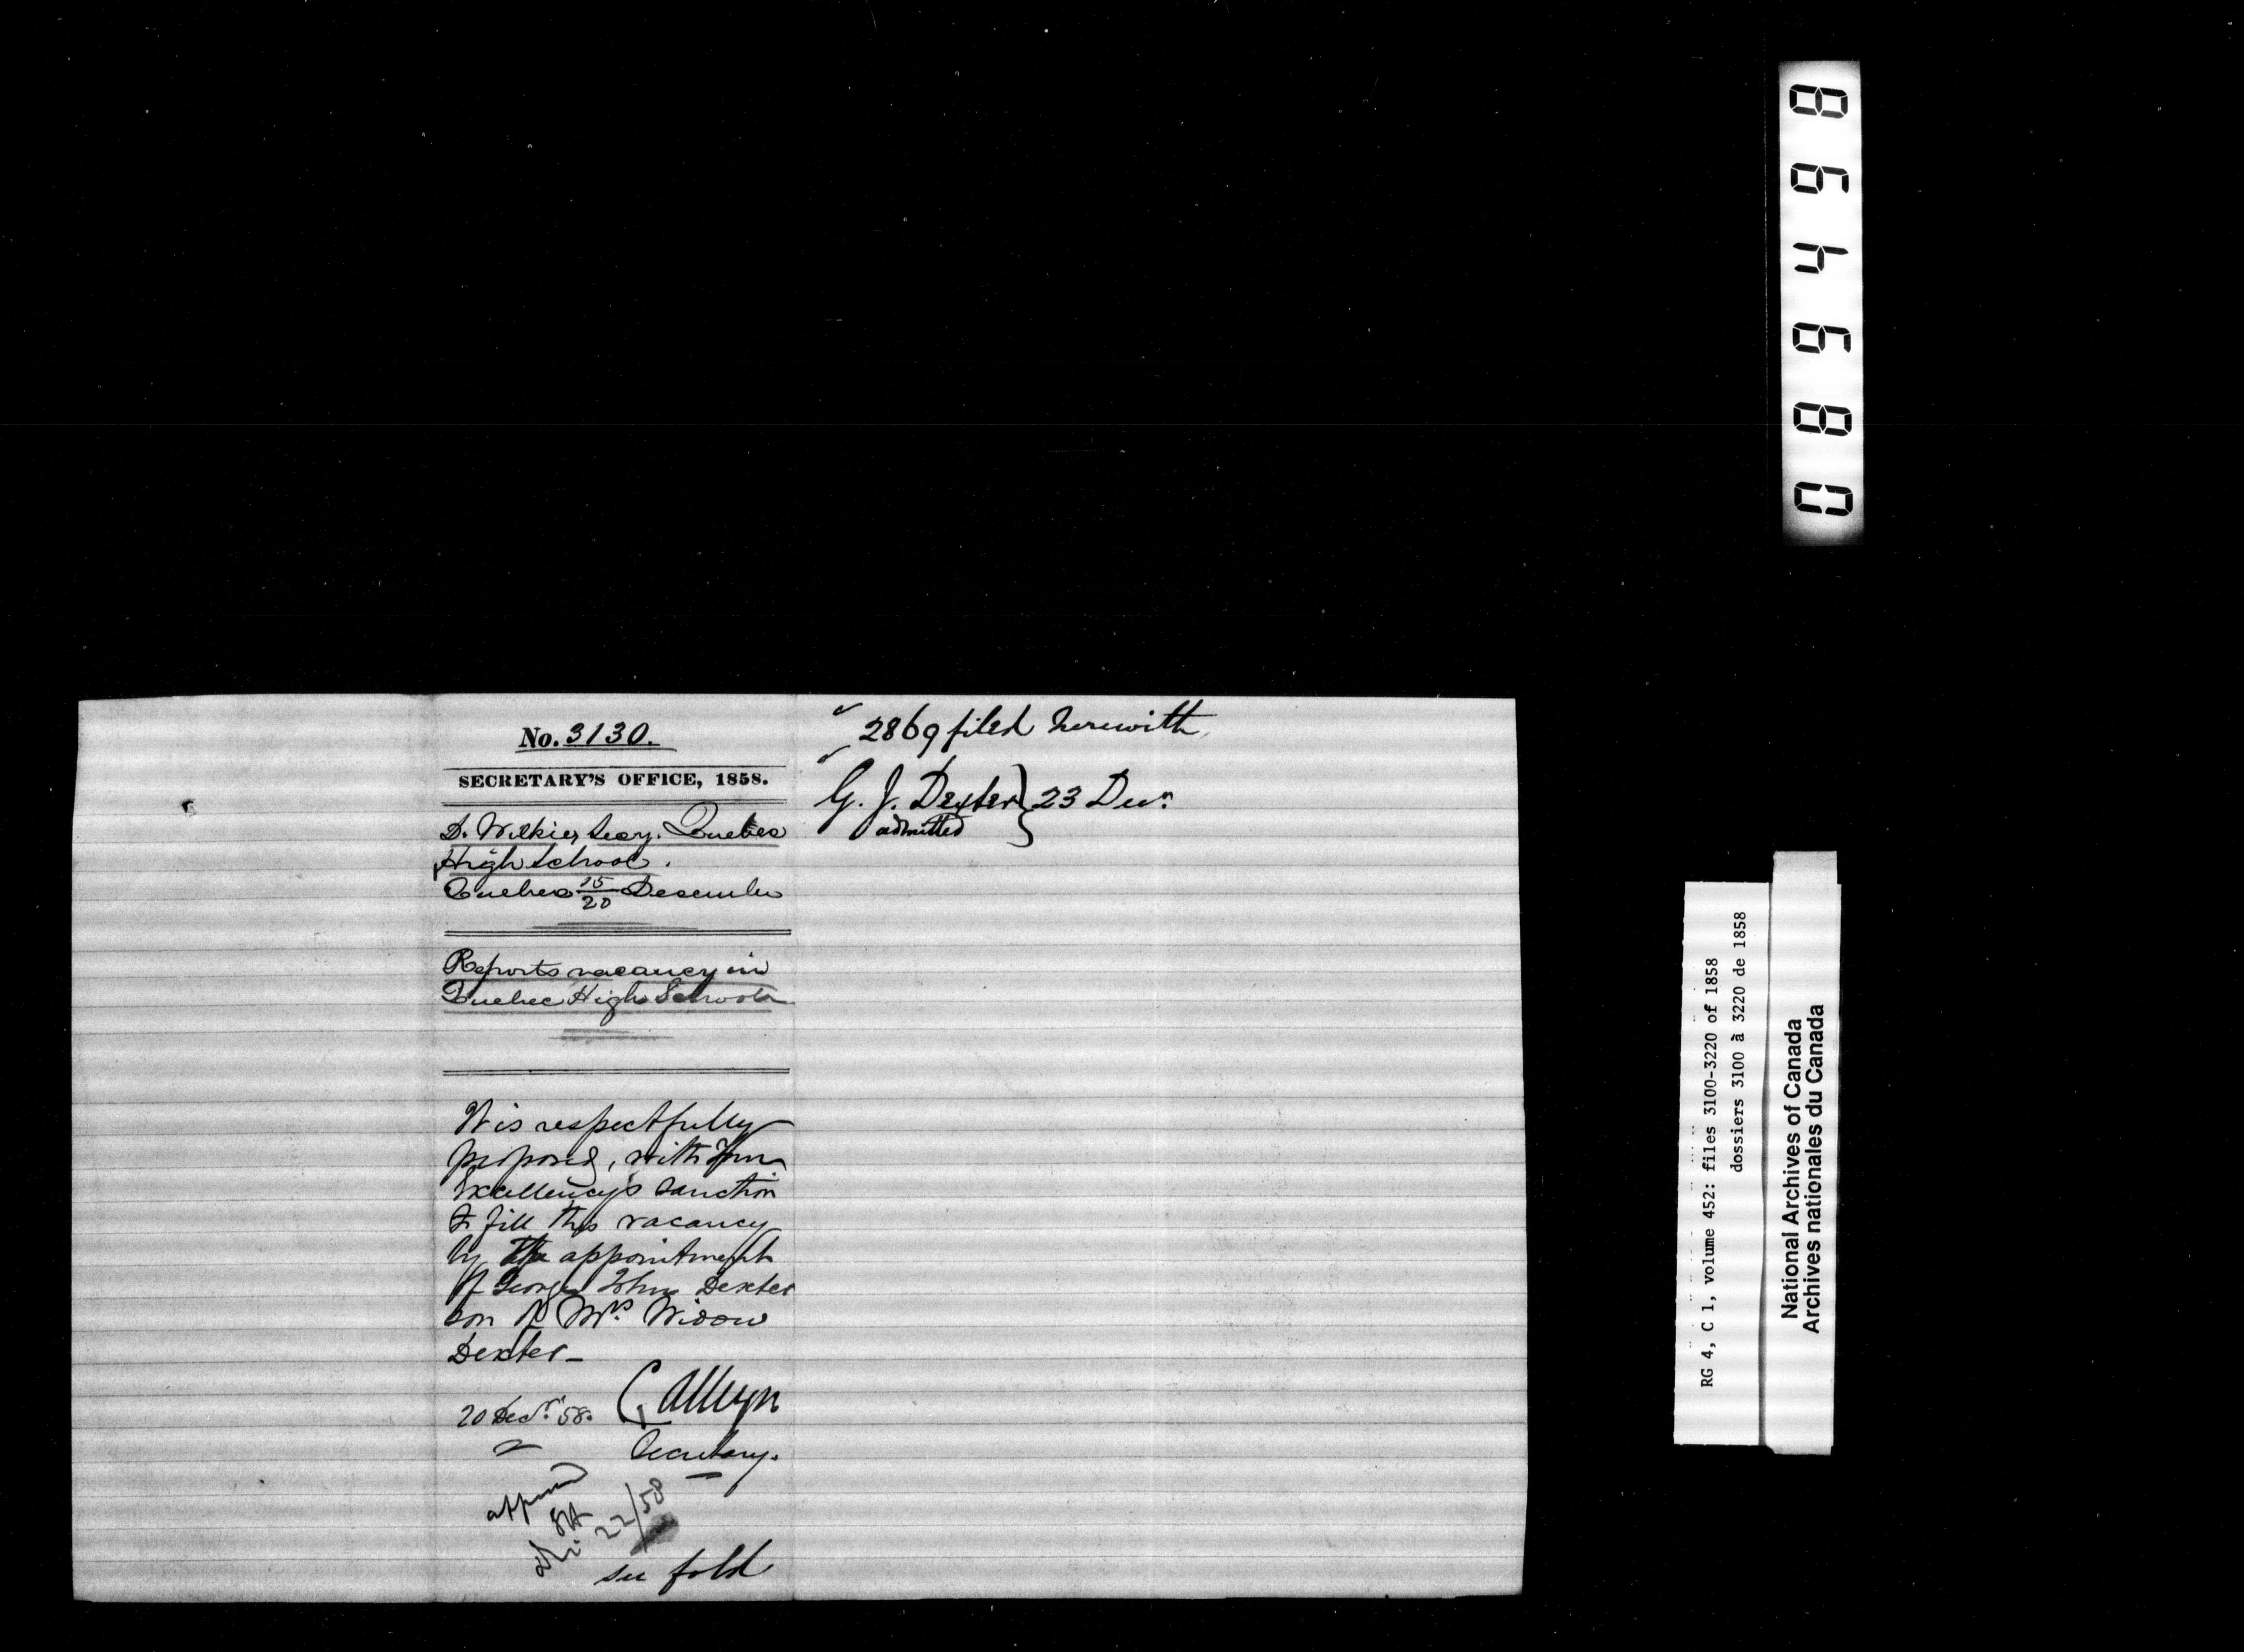 No. 3130.
SECRETARY'S OFFICE, 1858.
D. Wilkie, Secy. Quebec
High School.
Quebec 15/20 December
Reports vacancy in
Quebec High School
It is respectfully
proposed, with Your
Excellency's sanction
to fill this vacancy
by the appointment
of George John Dexter
son of Mrs. Widow
Dexter—
20 Decr. 58. C. Alleyn
Secretary.
22/58
see fold
2869 filed herewith
G. J. Dexter } 23 Decr.
admitted
086498
RG 4, C 1, volume 452: files 3100-3220 of 1858
dossiers 3100 à 3220 de 1858
National Archives of Canada
Archives nationales du Canada